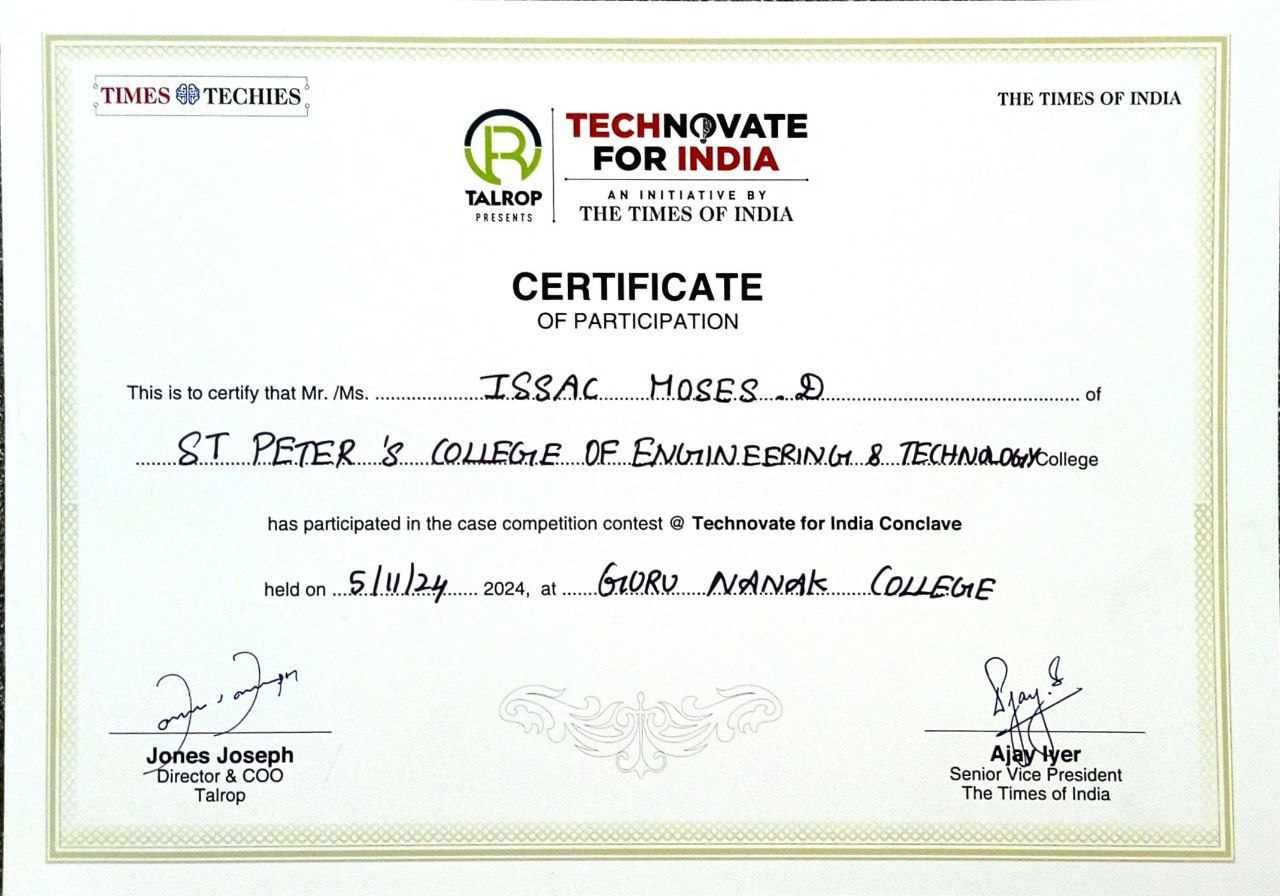 TIMES TECHIES
THE TIMES OF INDIA
TALROP
PRESENTS
TECHNOVATE
FOR INDIA
AN INITIATIVE BY
THE TIMES OF INDIA
CERTIFICATE
OF PARTICIPATION
This is to certify that Mr. /Ms. ISSAC MOSES .D of
ST PETER 'S COLLEGE OF ENGINEERING & TECHNOLOGY College
has participated in the case competition contest @ Technovate for India Conclave
held on 5/11/24 2024, at GURU NANAK COLLEGE
Jones Joseph
Director & COO
Talrop
Ajay Iyer
Senior Vice President
The Times of India